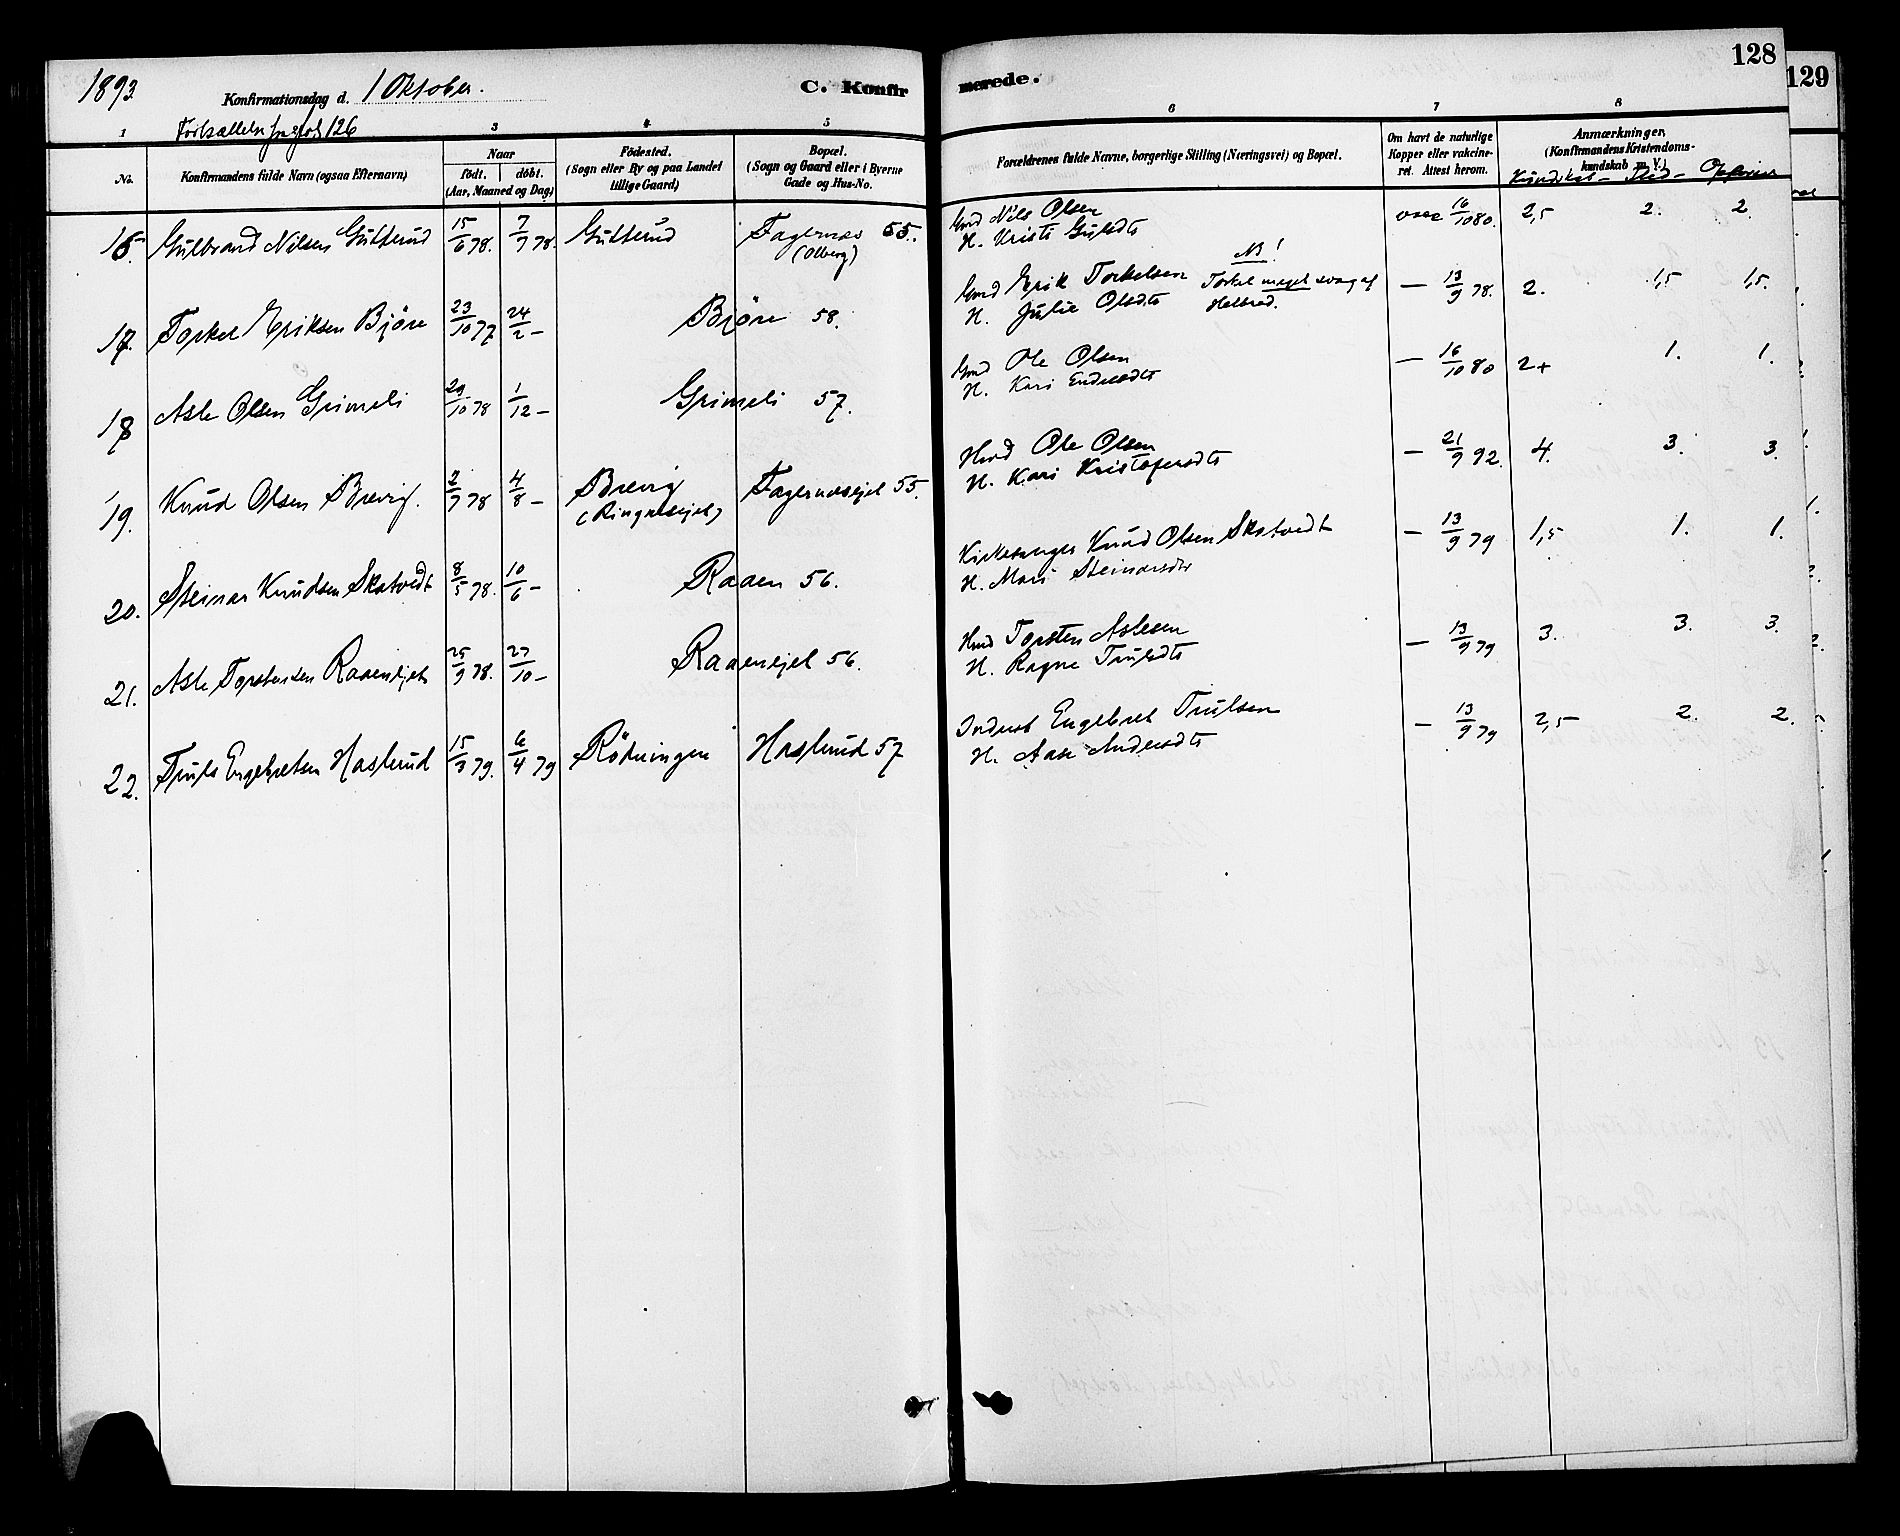 1893.
Konfirmationsdag d. 1 Oktober.
C. Konfirmerede.
128
129
1 3 4 5 6 7 8
126
No.
Konfirmandens fulde Navn (ogsaa Efternavn)
Naar
født. døbt.
(Aar, Maaned og Dag)
Fødested.
(Sogn eller By og paa Landet
tillige Gaard)
Bopæl.
(Sogn og Gaard eller i Byerne
Gade og Hus-No.
Forældrenes fulde Navne, borgerlige Stilling (Næringsvei) og Bopæl.
Om havt de naturlige
Kopper eller vakcine-
ret. Attest herom.
Anmærkninger,
(Konfirmandens Kristendoms-
kundskab m. V.)
Kundskab - Flid -
16. Gulbrand Nilsen Gutterud 15/6 78. 7/7 78. Gutterud Fagernæs 55. Gmd Nils Olsen 16/10 80. 2,5 2. 2.
(Olberg) H. Kristi Gulsdt
NB!
17. Torkel Eriksen Björe 23/10 77 24/2 - Björe 58. Gmd Erik Torkelsen Torkel meget svag af — 13/9 78. 2. 1,5 1,5.
H. Julie Olsdt Helbred.
18 Asle Olsen Grimeli 29/10 78 1/12 - Grimeli 57. Gmd Ole Olsen — 16/10 80 2+ 1. 1.
H. Kari Endresdt
19. Knud Olsen Brevig. 2/7 78 4/8 - Brevig Fagernæsejet 55. Hmd Ole Olsen — 21/9 92. 4. 3. 3.
(Ringnesejet) H. Kari Kristofersdt
20. Steinar Knudsen Skatvedt 8/5 78. 10/6 - Raaen 56. Kirkesanger Knud Olsen Skatvedt — 13/9 79 1,5 1. 1.
H. Mari Steinarsdtr
21. Asle Torstensen Raaenejet 25/9 78. 27/10 - Raaenejet 56. Hmd Torsten Aslesen — 13/9 79 3. 3. 3.
H. Ragne Trulsdt
22. Truls Engebretsen Haslerud 15/3 79. 6/4 79 Rötningen Haslerud 57 Inderst Engebret Trulsen — 13/9 79 2,5 2. 2.
H. Aase Andersdt